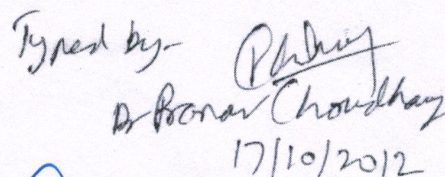 Typed by-
Dr Pranav Choudhary
17/10/2012